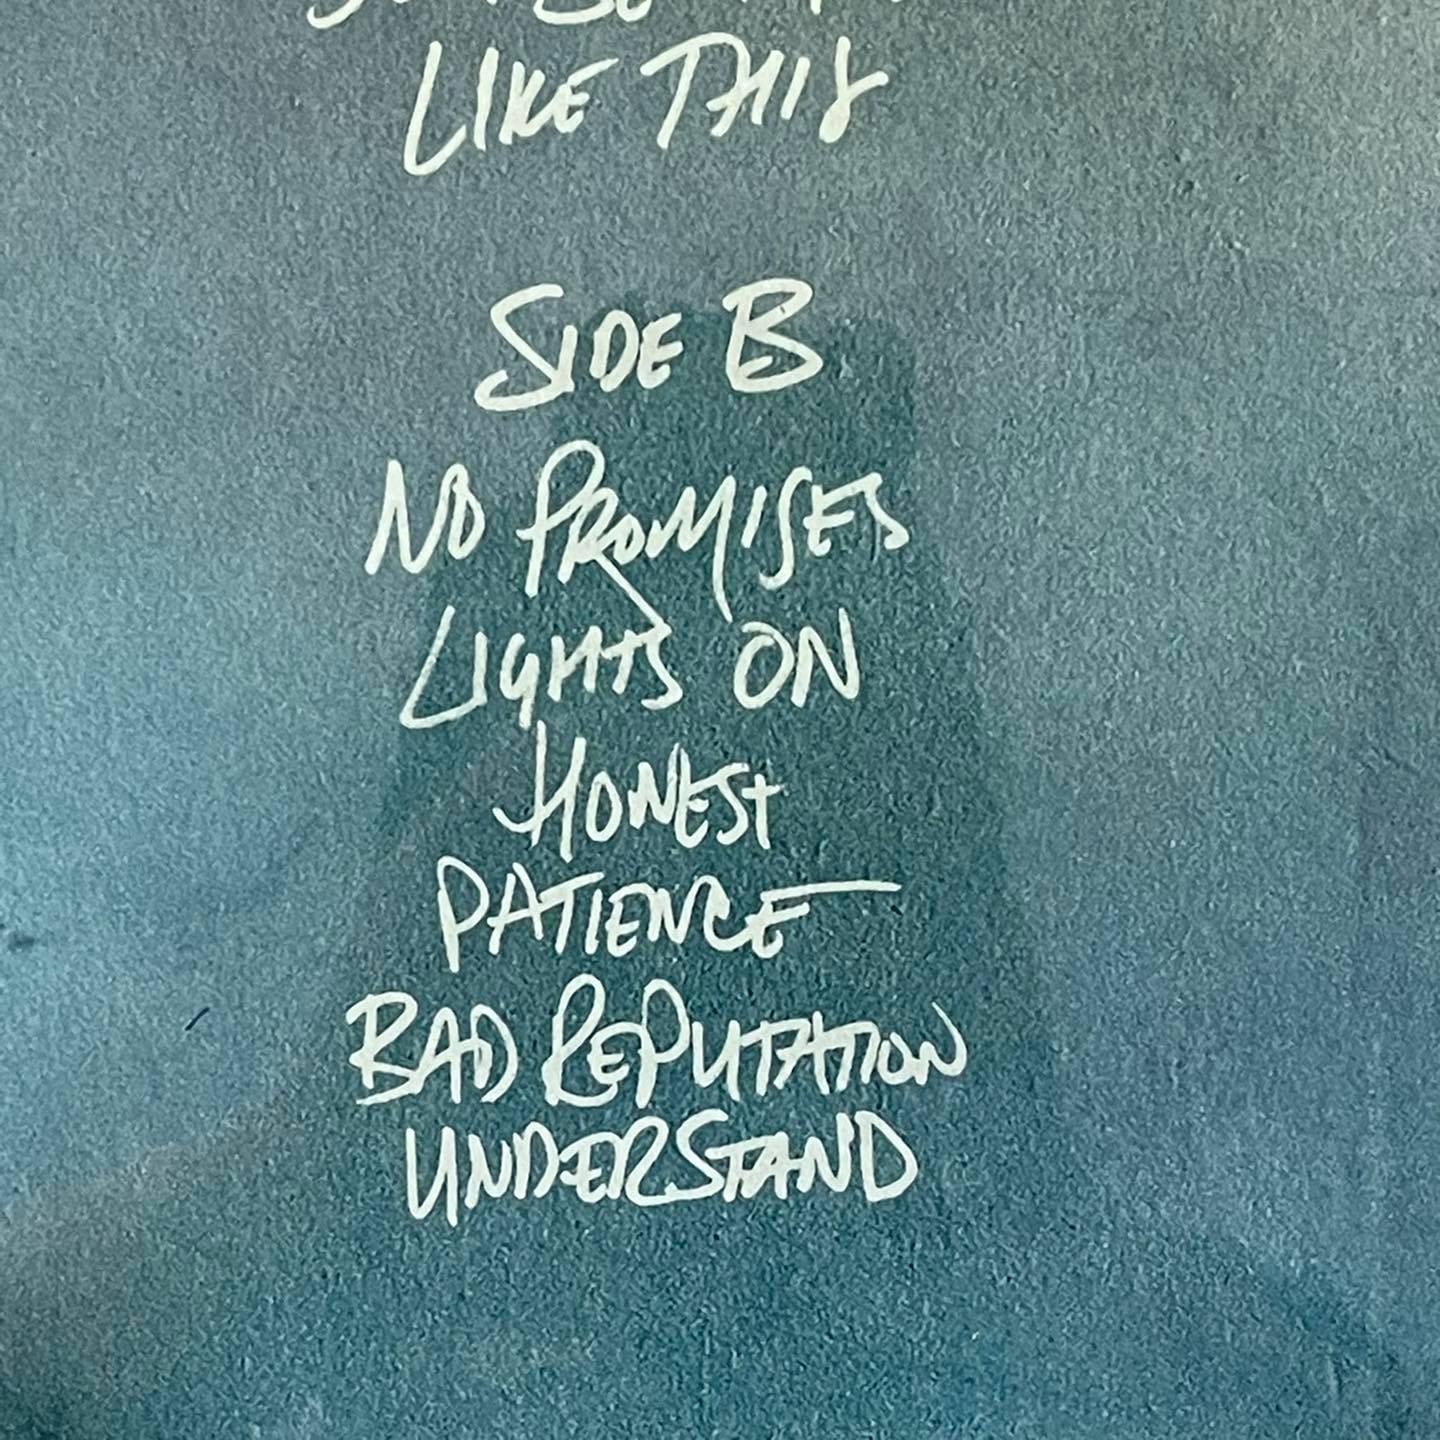 LIKE THIS
SIDE B
NO PROMISES
LIGHTS ON
HONEST
PATIENCE
BAD REPUTATION
UNDERSTAND